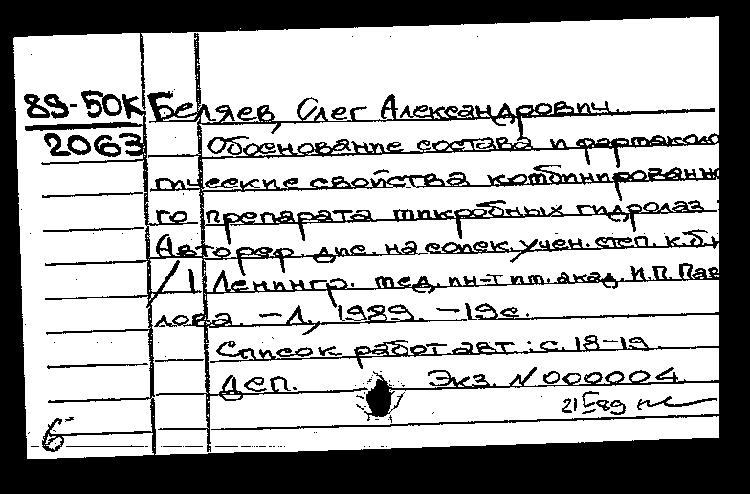 89-50К Беляев, Олег Александрович.
2063 Обоснование состава и фармаколо
гические свойства комбинированно
го препарата микробных гидролаз :
Автореф. дис. на соиск. учен. степ. к.б.н
/1 Ленингр. мед. ин-т им. акад. И.П. Пав
лова. - Л., 1989. - 19с.
Список работ авт.: с. 18-19.
Деп. Экз. N 000004
21 89
б